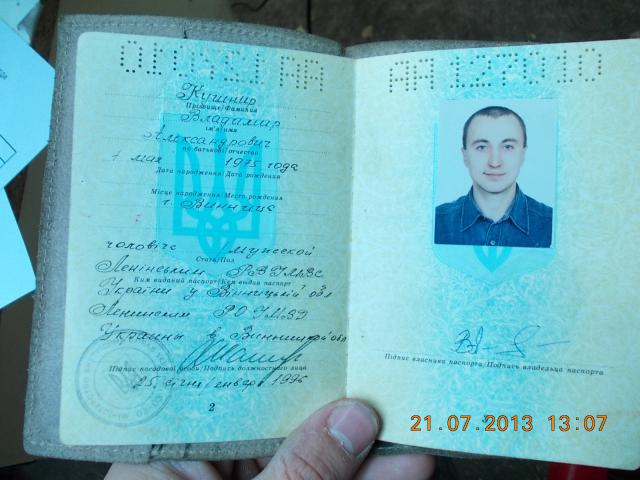 АА 122010
Кушнир
Прізвище/Фамилия
Владимир
Ім'я/Имя
Александрович
По батькові/Отчество
1 мая 1975 года
Дата народження/Дата рождения
Місце народження/Место рождения
г. Винница
чоловіче мужской
Стать/Пол
Ленінським РВ УМВС
Ким виданий паспорт/Кем выдан паспорт
України у Вінницькій обл
Ленинским РО УМВД
Украины в Винницкой обл
Підпис посадової особи/Подпись должностного лица
25 січня/января 1996
2
Підпис власника паспорта/Подпись владельца паспорта
21.07.2013 13:07